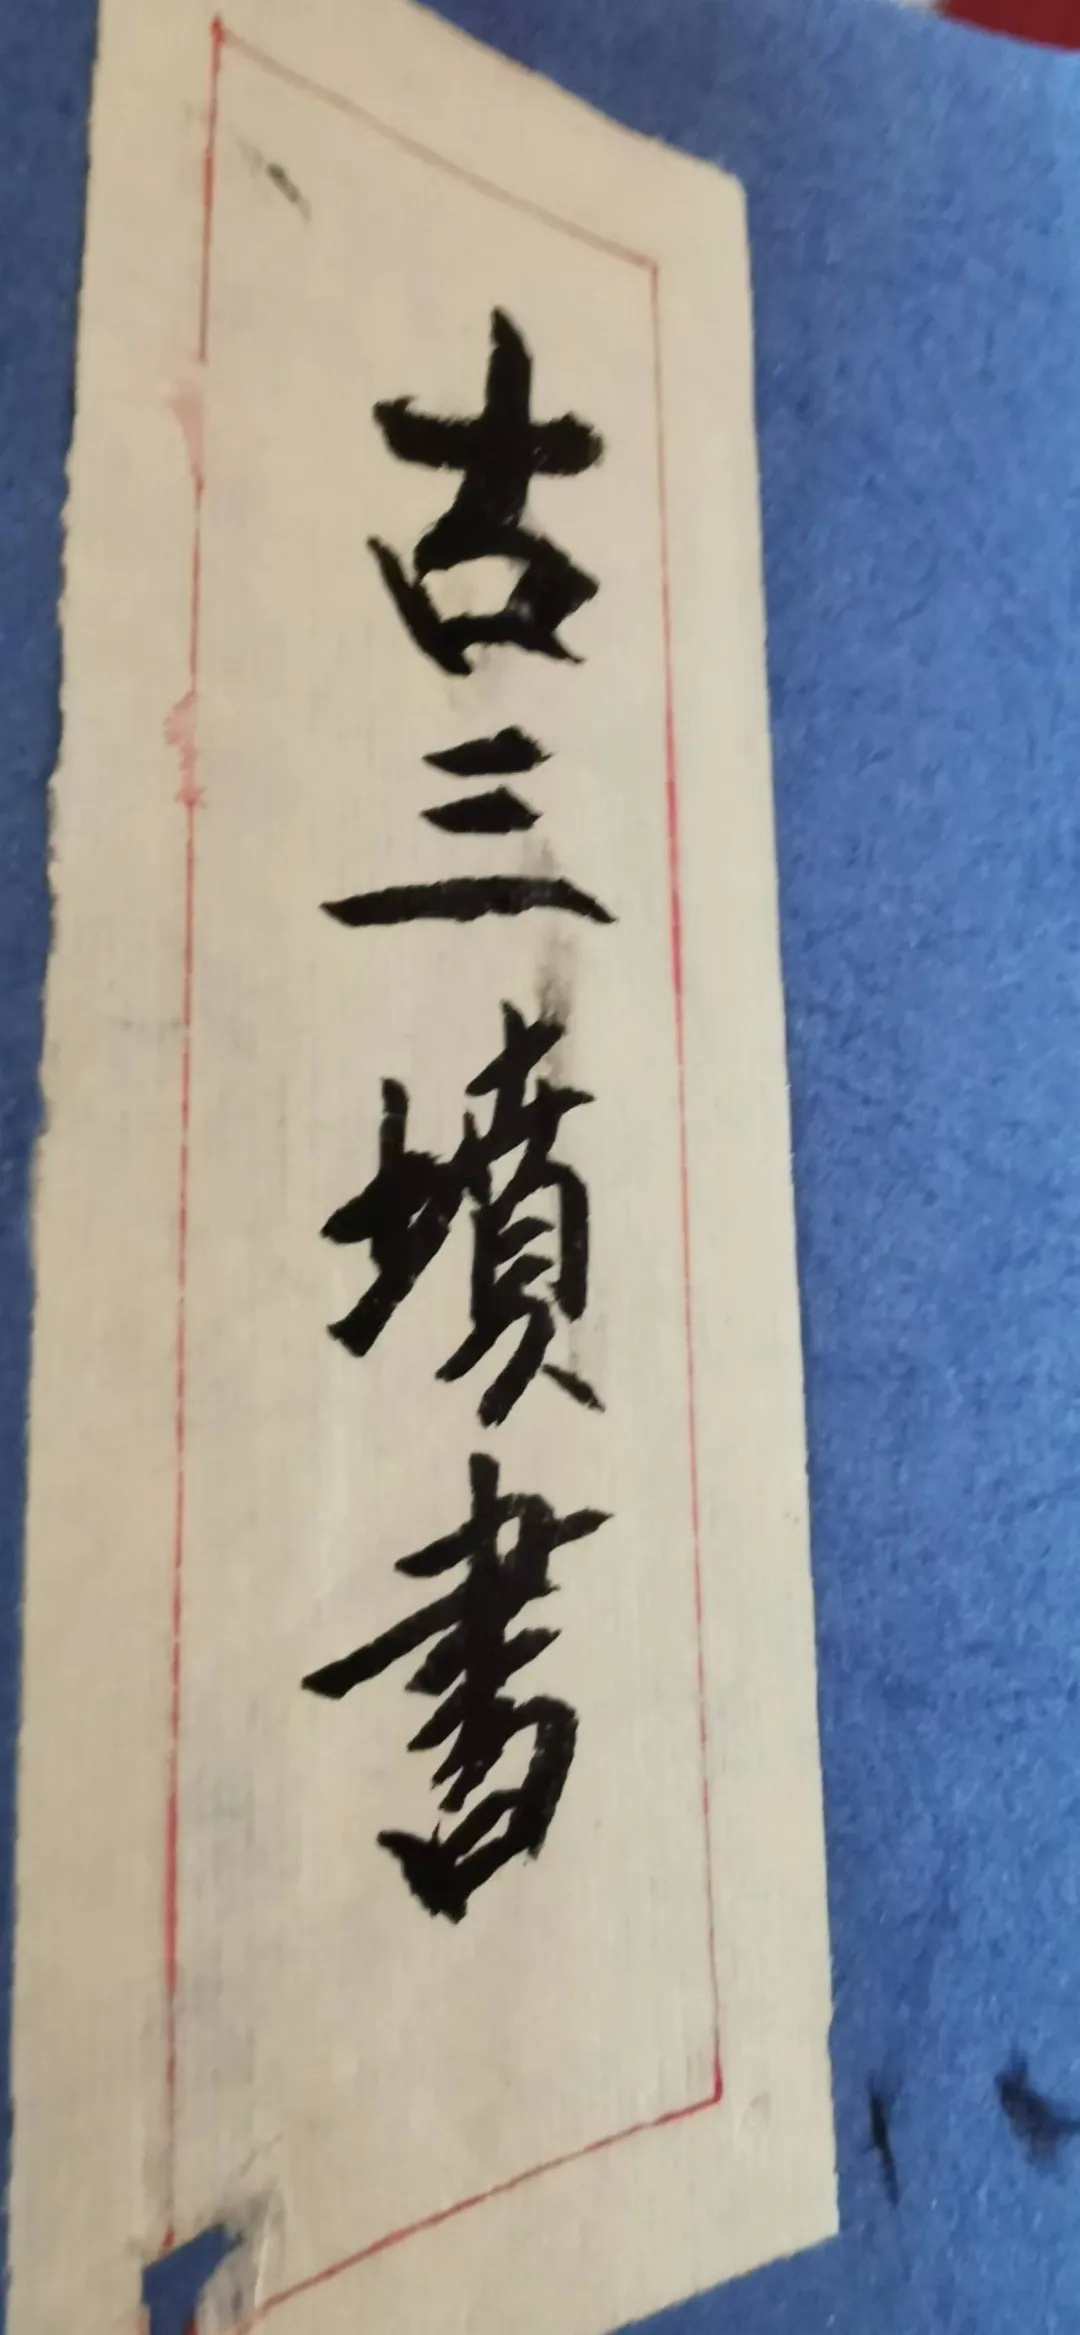 古三墳書